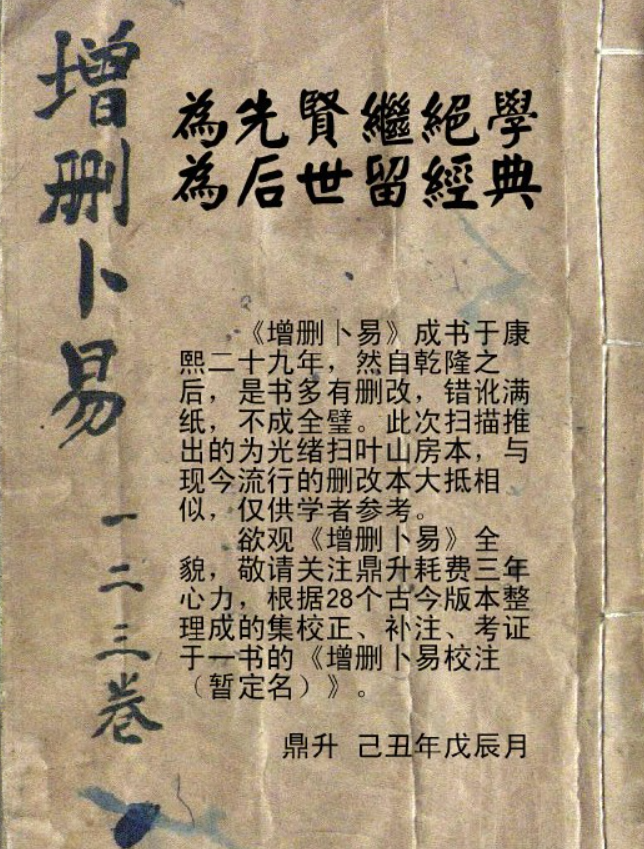 增删卜易
一二三卷
為先賢繼絕學
為后世留經典
《增删卜易》成书于康
熙二十九年，然自乾隆之
后，是书多有删改，错讹满
纸，不成全璧。此次扫描推
出的为光绪扫叶山房本，与
现今流行的删改本大抵相
似，仅供学者参考。
欲观《增删卜易》全
貌，敬请关注鼎升耗费三年
心力，根据28个古今版本整
理成的集校正、补注、考证
于一书的《增删卜易校注
（暂定名）》。
鼎升 己丑年戊辰月